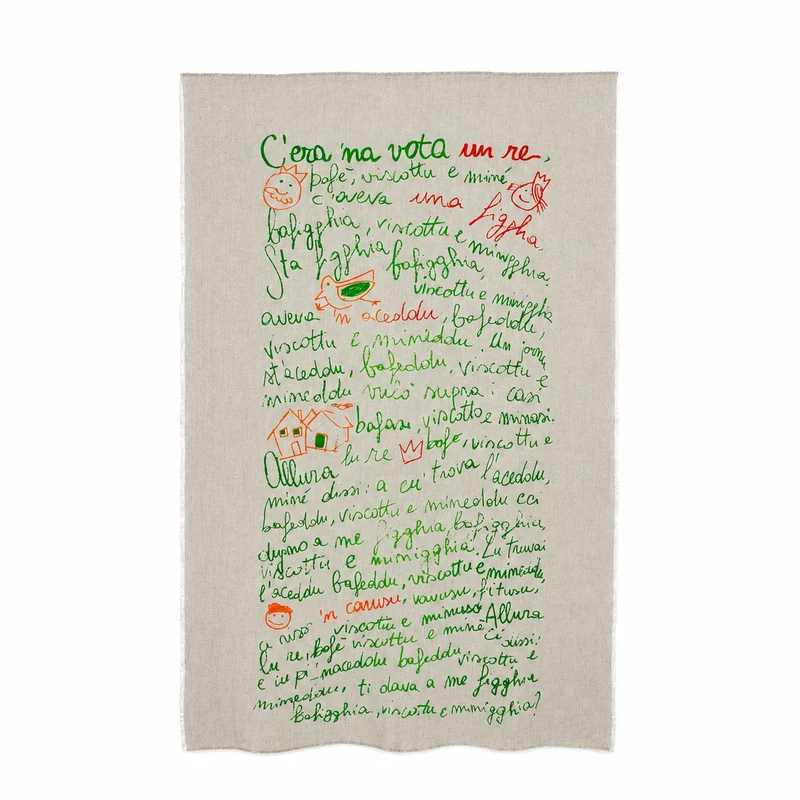 C'era 'na vota un re,
bafè, viscottu e miné
c'aveva una figghia,
bafigghia, viscottu e minigghia.
Sta figghia bafigghia,
viscottu e minigghia
aveva 'n aceddu, bafeddu,
viscottu e mineddu. Un jornu
st'aceddu, bafeddu, viscottu e
mineddu vulò supra i casi
bafasi, viscotto e minasi.
Allura lu re bafè, viscottu e
miné dissi: a cu' trova l'aceddu,
bafeddu, viscottu e mineddu cci
dugno a me figghia bafigghia,
viscottu e minigghia. Lu truvai
l'aceddu bafeddu, viscottu e mineddu,
'n carusu, vavusu, fitusu,
viscottu e minuso. Allura
lu re, bafè viscottu e minè ci dissi:
e iu pi 'naceddu bafeddu, viscottu e
mineddu, ti dava a me figghia
bafigghia, viscottu e minigghia?